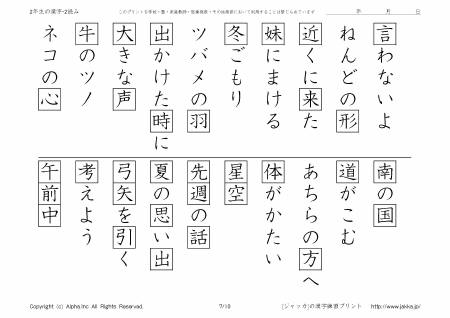 2年生の漢字-2読み
このプリントを学校・塾・家庭教師・医療機関・その他施設において利用することは禁じられています
年 月 日
言わないよ
ねんどの形
近くに来た
妹にまける
冬ごもり
ツバメの羽
出かけた時に
大きな声
牛のツノ
ネコの心
南の国
道がこむ
あちらの方へ
体がかたい
星空
先週の話
夏の思い出
弓矢を引く
考えよう
午前中
Copyright (c) Alpha.Inc All Rights Reserved.
7/10
[ジャッカ]の漢字練習プリント
http://www.jakka.jp/